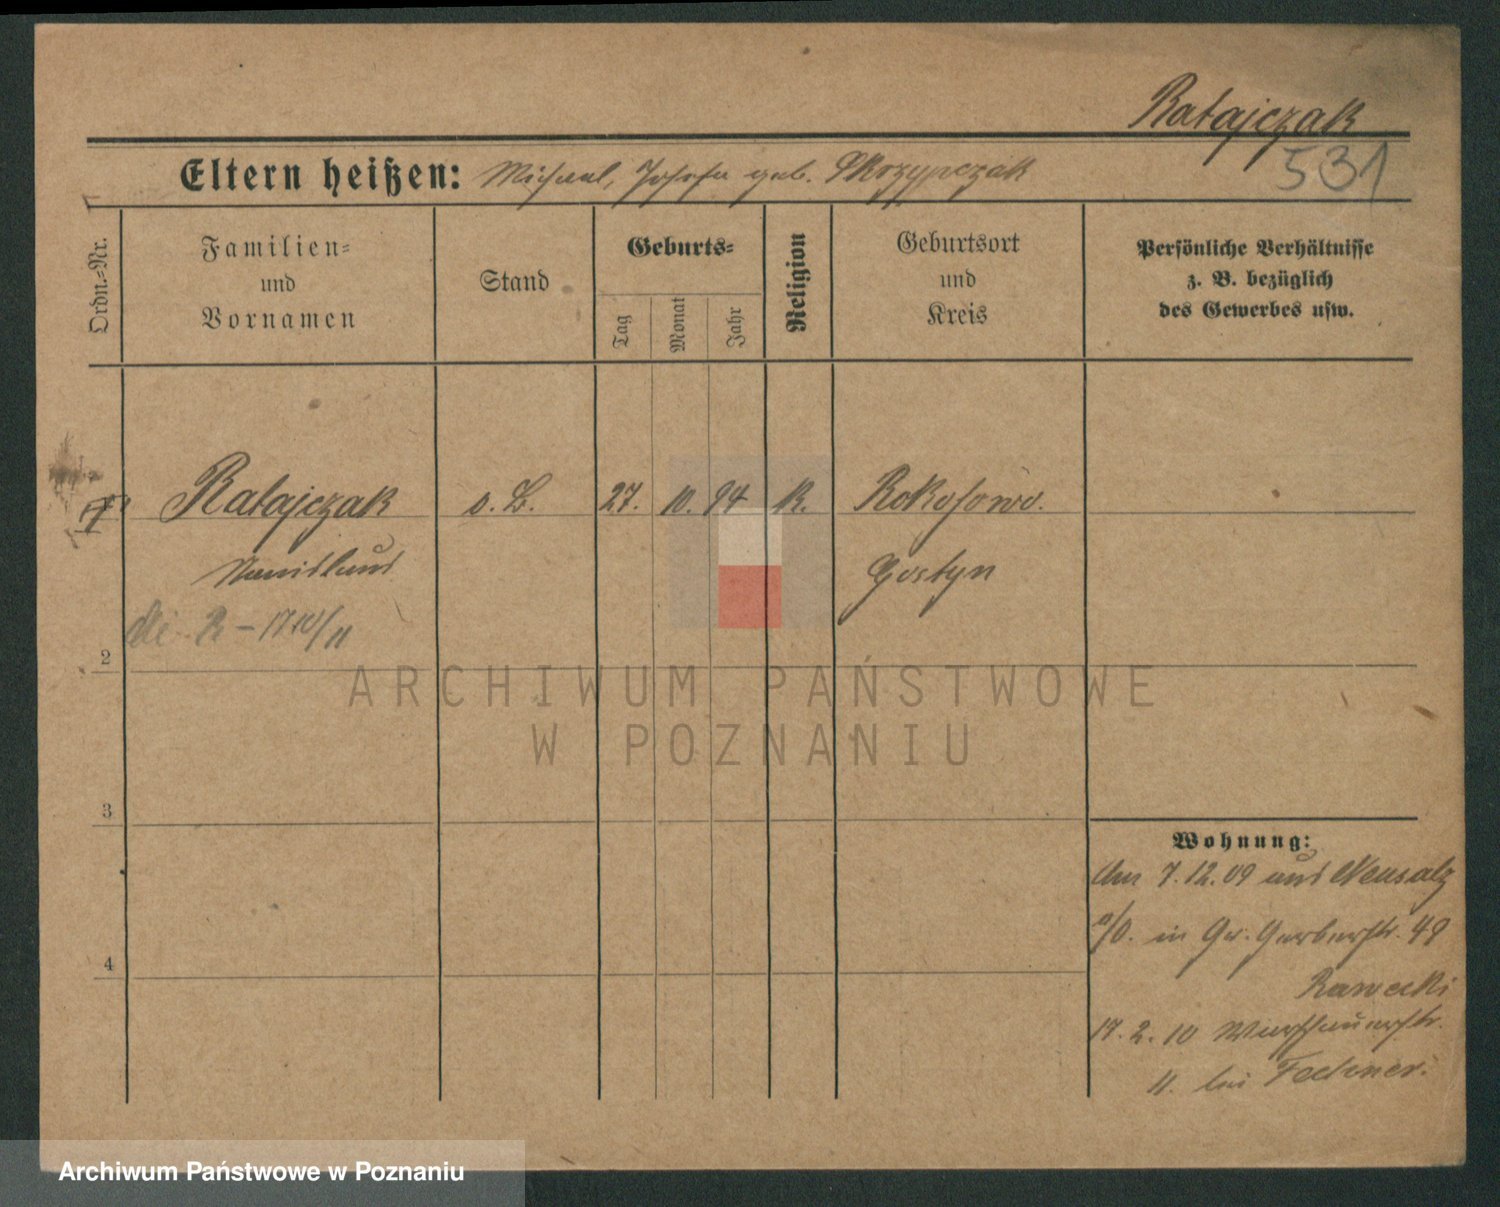 Ratajczak
531
Eltern heißen: Michael, Josefa geb. Skrzypczak
Ordn.=Nr.
Familien=
und
Vornamen
Stand
Geburts=
Tag
Monat
Jahr
Religion
Geburtsort
und
Kreis
Persönliche Verhältnisse
z. B. bezüglich
des Gewerbes usw.
Ratajczak
s. B. 27. 10. 94 K. Rokosowo.
Stanislaus
Gostyn
R - 17 10/11
2
ARCHIWUM PAŃSTWOWE
W POZNANIU
3
Wohnung:
Am 7.12.09 aus Neusalz
a/O. in Gr. Gerberstr. 49
Rawecki
17.2.10 Warschauerstr.
11. bei Fechner.
4
Archiwum Państwowe w Poznaniu